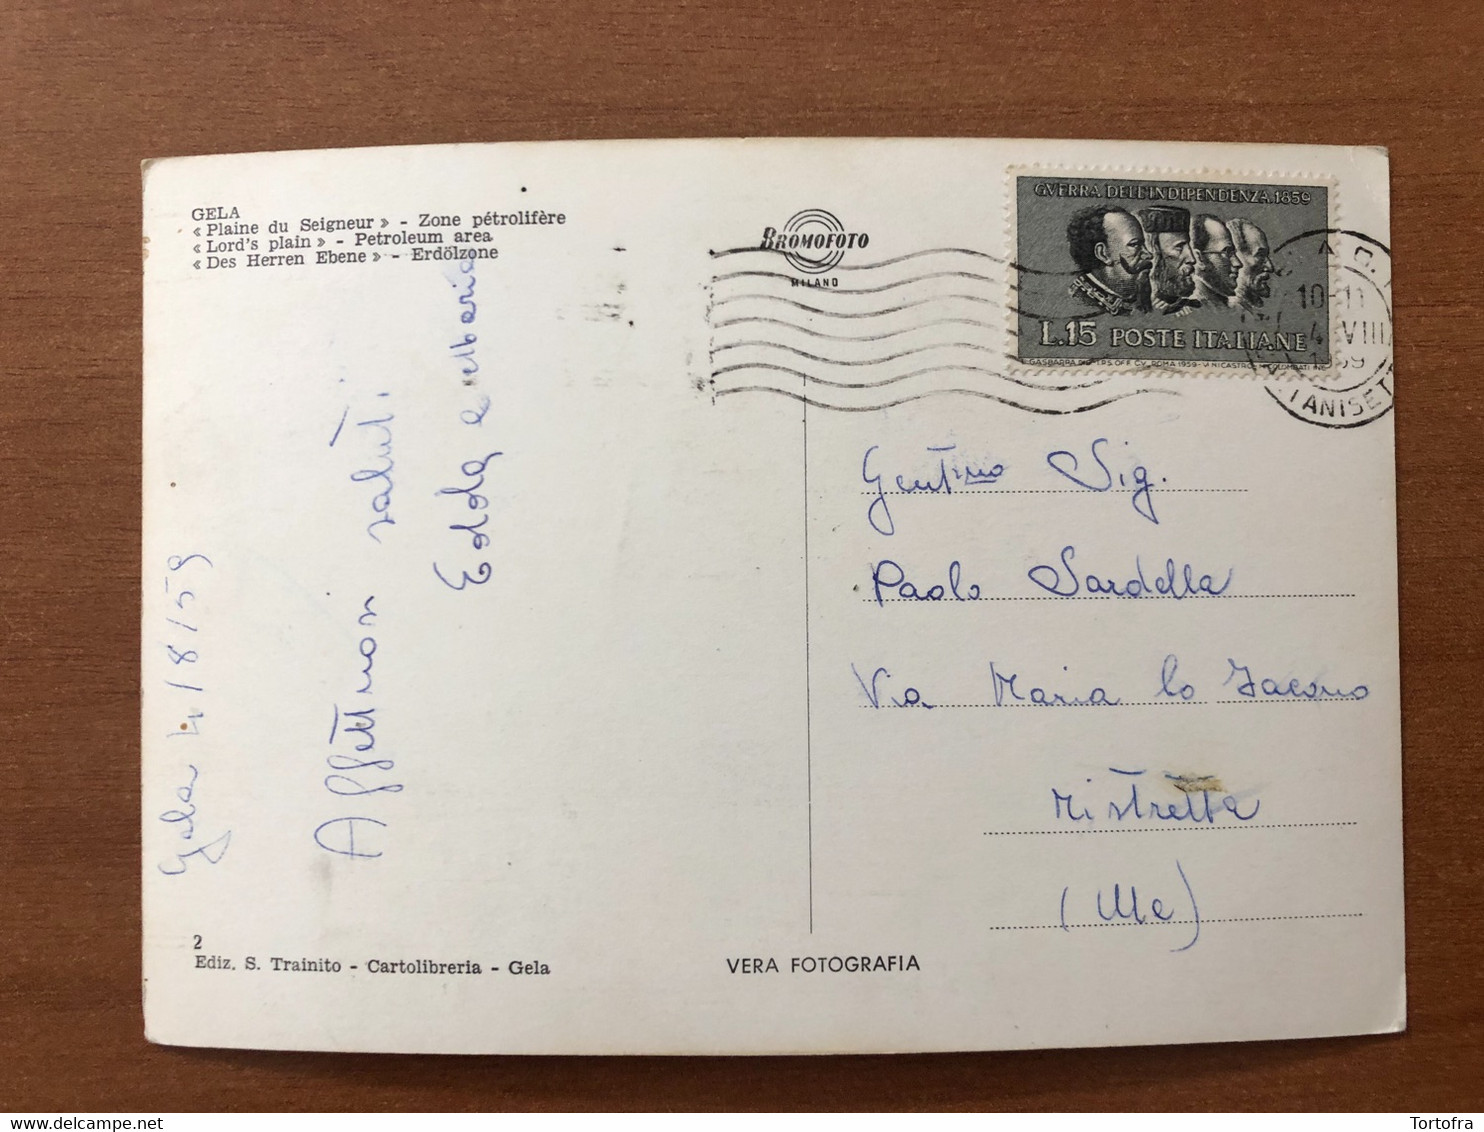 GELA
« Plaine du Seigneur » - Zone pétrolifère
« Lord's plain » - Petroleum area
« Des Herren Ebene » - Erdölzone
BROMOFOTO
MILANO
GVERRA DELL'INDIPENDENZA 1859
L.15 POSTE ITALIANE
ROMA 1959
10-11
4 VIII
1959
TANISET
Gela 4/8/59
Affettuosi saluti.
Edda e
Gentmo Sig.
Paolo Sardella
Via Maria lo Iacono
Mistretta
(Me)
2
Ediz. S. Trainito - Cartolibreria - Gela
VERA FOTOGRAFIA
Tortofra